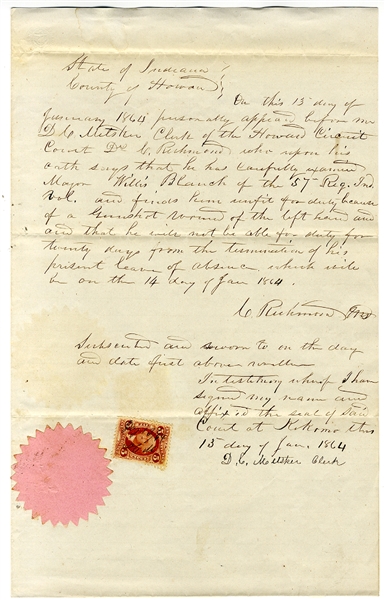 State of Indiana
County of Howard
On this 13 day of
January 1864 personally appeard before me
D. C. Metsker Clerk of the Howard Circuit
Court Dr C. Richmond who upon his
oath says that he has carefully examined
Major Willis Blanch of the 57 Reg. Ind.
Vol. and finds him unfit for duty because
of a Gunshot wound of the left hand
and that he will not be able for duty for
twenty days from the termination of his
present leave of absence which will
be on the 14 day of Jan 1864.
C Richmond
Subscribed and sworn to on the day
and date first above written
In testimony whereof I have
signed my name and
affixed the seal of said
Court at Kokomo this
13 day of Jan. 1864
D. C. Metsker Clerk